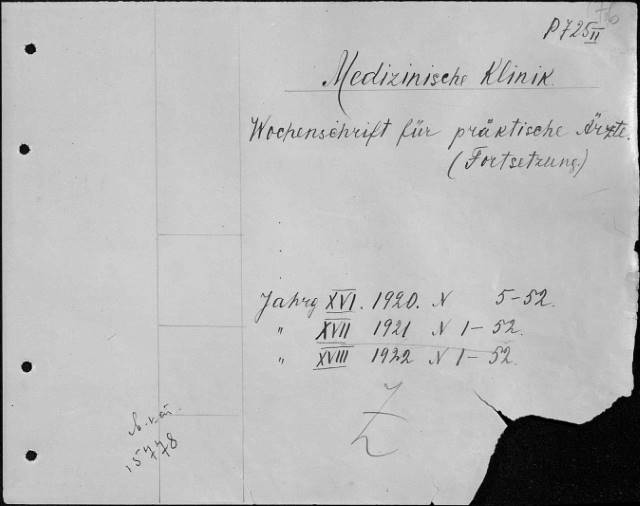 P725II
Medizinische Klinik.
Wochenschrift für präktische Ärzte.
(Fortsetzung.)
Jahrg XVI. 1920. N 5-52.
" XVII 1921 N 1-52.
" XVIII 1922 N 1-52.
Z
15778